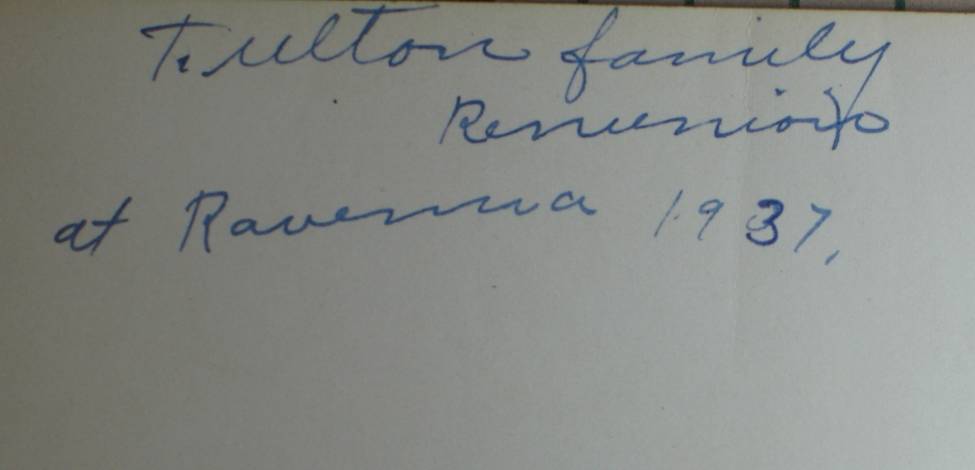 Fulton family
Renunion
at Ravenna 1937,